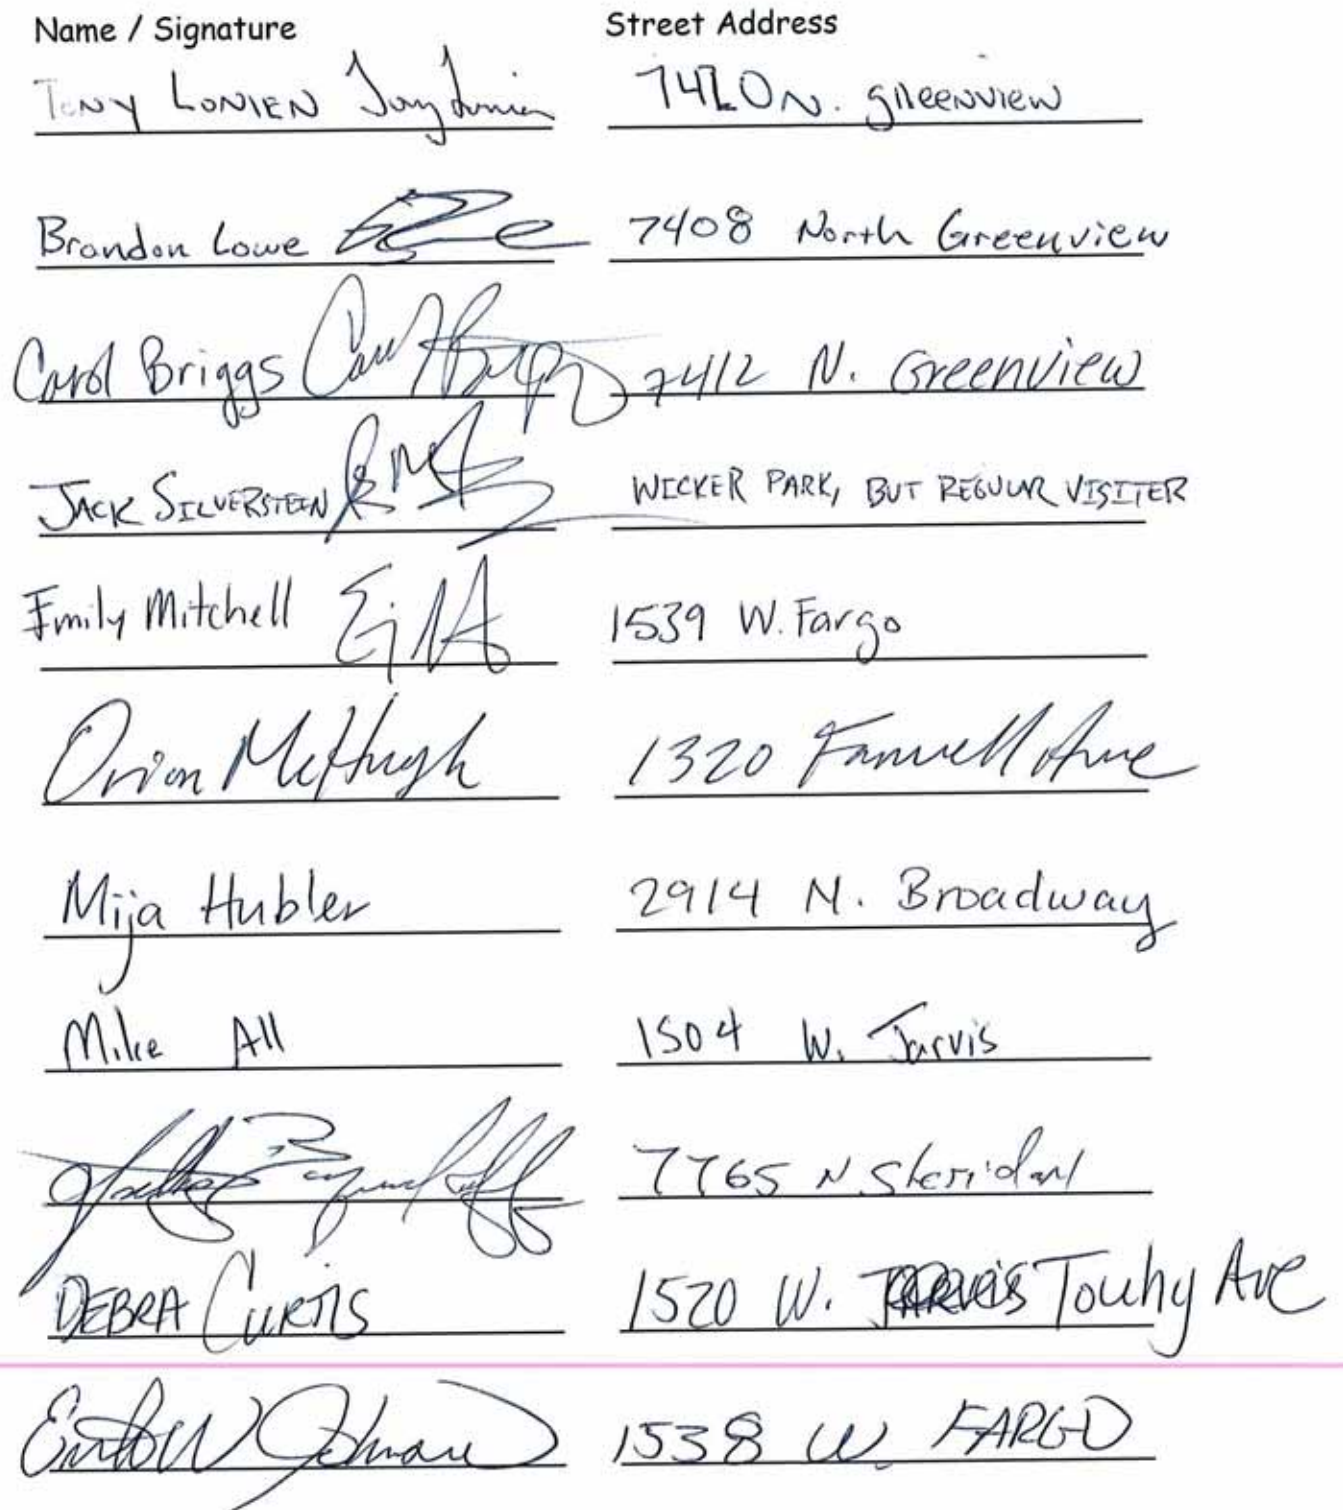 Name / Signature Street Address
Tony LONIEN 7420 N. greenview
Brandon Lowe 7408 North Greenview
Carol Briggs Carol Briggs 7412 N. Greenview
JACK SILVERSTEIN WICKER PARK, BUT REGULAR VISITER
Emily Mitchell 1539 W. Fargo
Orion McHugh 1320 Farwell Ave
Mija Hubler 2914 N. Broadway
Mike All 1504 W. Jarvis
7765 N Sheridan
DEBRA CURTIS 1520 W. Touhy Ave
1538 W. FARGO